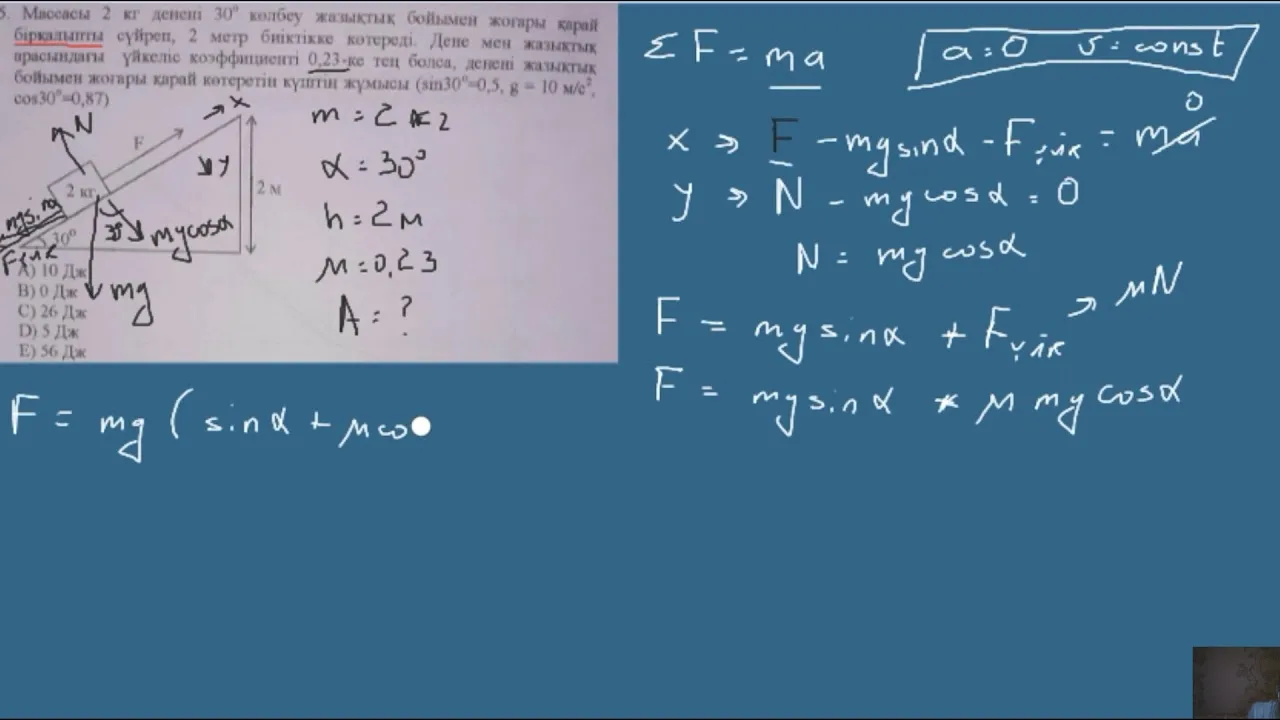 5. Массасы 2 кг денені 30° көлбеу жазықтық бойымен жоғары қарай
бірқалыпты сүйреп, 2 метр биіктікке көтереді. Дене мен жазықтық
арасындағы үйкеліс коэффициенті 0,23-ке тең болса, денені жазықтық
бойымен жоғары қарай көтеретін күштің жұмысы (sin30°=0,5, g = 10 м/с²,
cos30°=0,87)
x
N
F
y
2 кг
2 м
mgsinα
30°
30°
mgcosα
Fүйк
mg
A) 10 Дж
B) 0 Дж
C) 26 Дж
D) 5 Дж
E) 56 Дж
m = 2 кг
α = 30°
h = 2м
μ = 0,23
A = ?
Σ F = ma
a = 0 υ = const
x → F - mgsinα - Fүйк = ma 0
y → N - mgcosα = 0
N = mgcosα
F = mgsinα + Fүйк → μN
F = mgsinα * μ mgcosα
F = mg ( sinα + μco